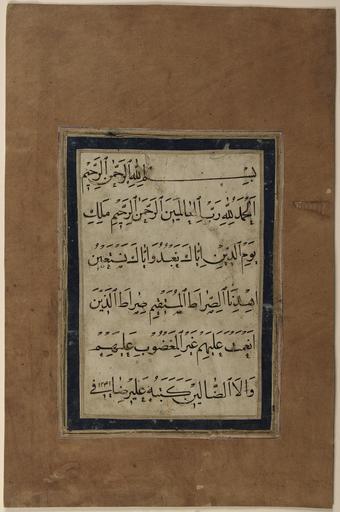 بِسْمِ ٱللَّهِ ٱلرَّحْمٰنِ ٱلرَّحِيمِ
اَلْحَمْدُ لِلّٰهِ رَبِّ ٱلْعَالَمِينَ ٱلرَّحْمٰنِ ٱلرَّحِيمِ مَلِكِ
يَوْمِ ٱلدِّينِ اِيَّاكَ نَعْبُدُ وَاِيَّاكَ نَسْتَعِينُ
اِهْدِنَا ٱلصِّرَاطَ ٱلْمُسْتَقِيمَ صِرَاطَ ٱلَّذِينَ
اَنْعَمْتَ عَلَيْهِمْ غَيْرِ ٱلْمَغْضُوبِ عَلَيْهِمْ
وَلَا ٱلضَّالِّينَ كَتَبَهُ عَلِيرِضَا فى